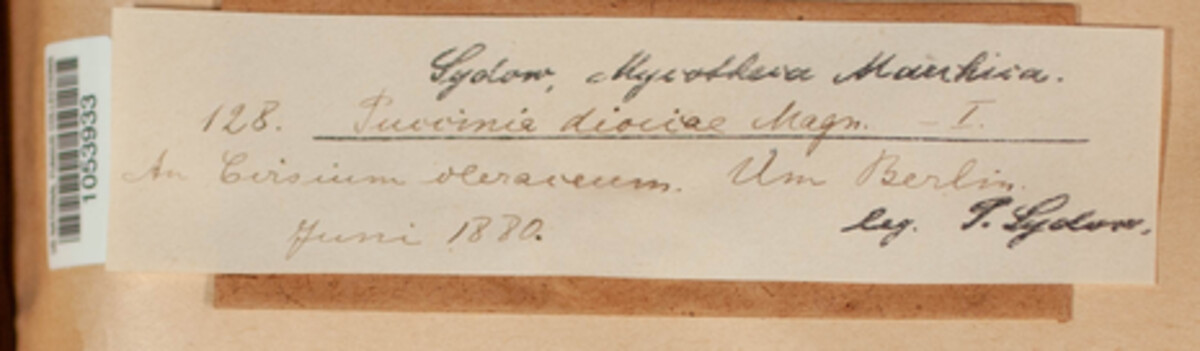 Sydow, Mycotheca Marchica.
128. Puccinia dioicae Magn. - I.
An Cirsium oleraceum. Um Berlin.
Juni 1880.
leg. P. Sydow.
1053933